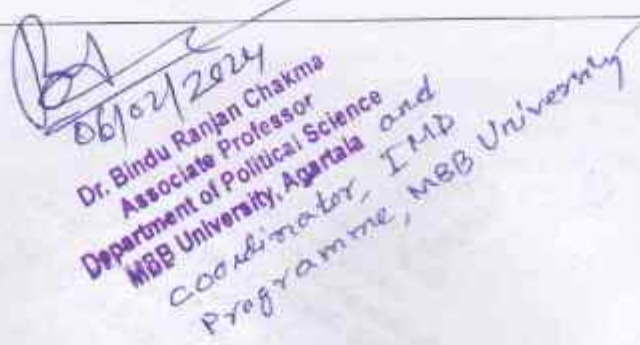 06/02/2024
Dr. Bindu Ranjan Chakma
Associate Professor
Department of Political Science
MBB University, Agartala and
Coordinator, IMD
Programme, MBB University